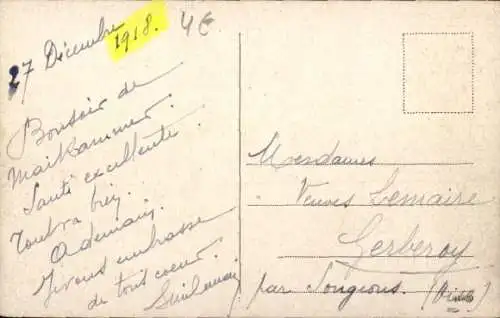 27 Décembre 1918.
4€
Bonsoir de
Maikammer.
Santé excellente.
Tout va bien.
A demain.
Je vous embrasse
de tout coeur.
Mesdames
Veuves Lemaire
Gerberoy
par Songeons. (Oise)